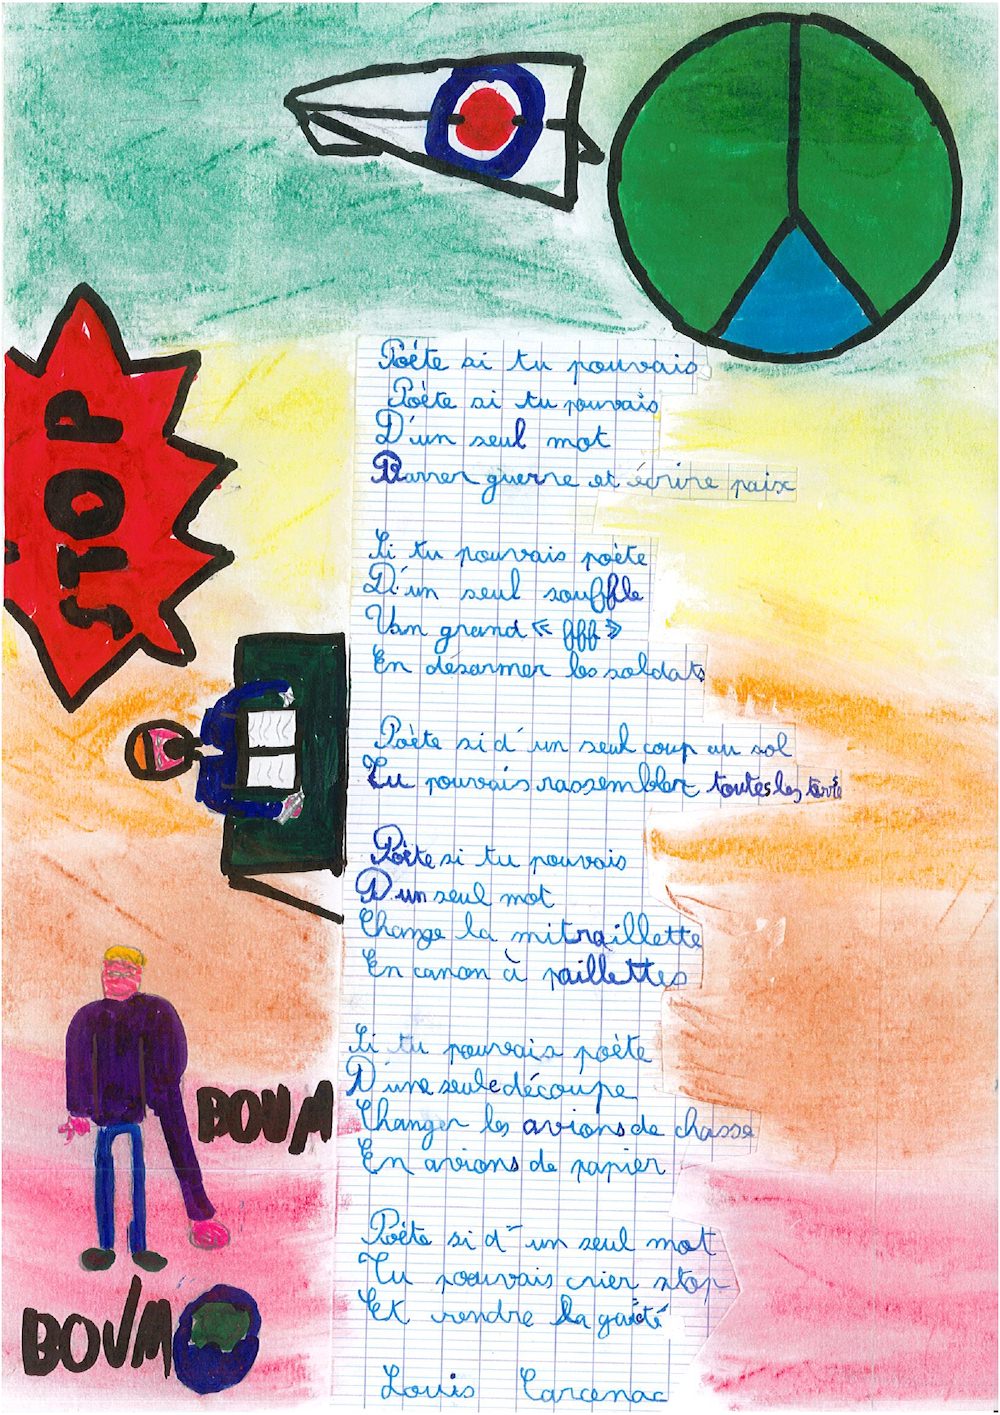 Poète si tu pouvais
Poète si tu pouvais
D'un seul mot
Barrer guerre et écrire paix
Si tu pouvais poète
D'un seul souffle
Un grand « fff »
En désarmer les soldats
Poète si d'un seul coup au sol
Tu pouvais rassembler toutes les
Poète si tu pouvais
D'un seul mot
Change la mitraillette
En canon à paillettes
Si tu pouvais poète
D'une seule découpe
Changer les avions de chasse
En avions de papier
Poète si d'un seul mot
Tu pouvais crier stop
Et rendre la gaïté
Louis Carcenac
STOP
BOUM
BOUM